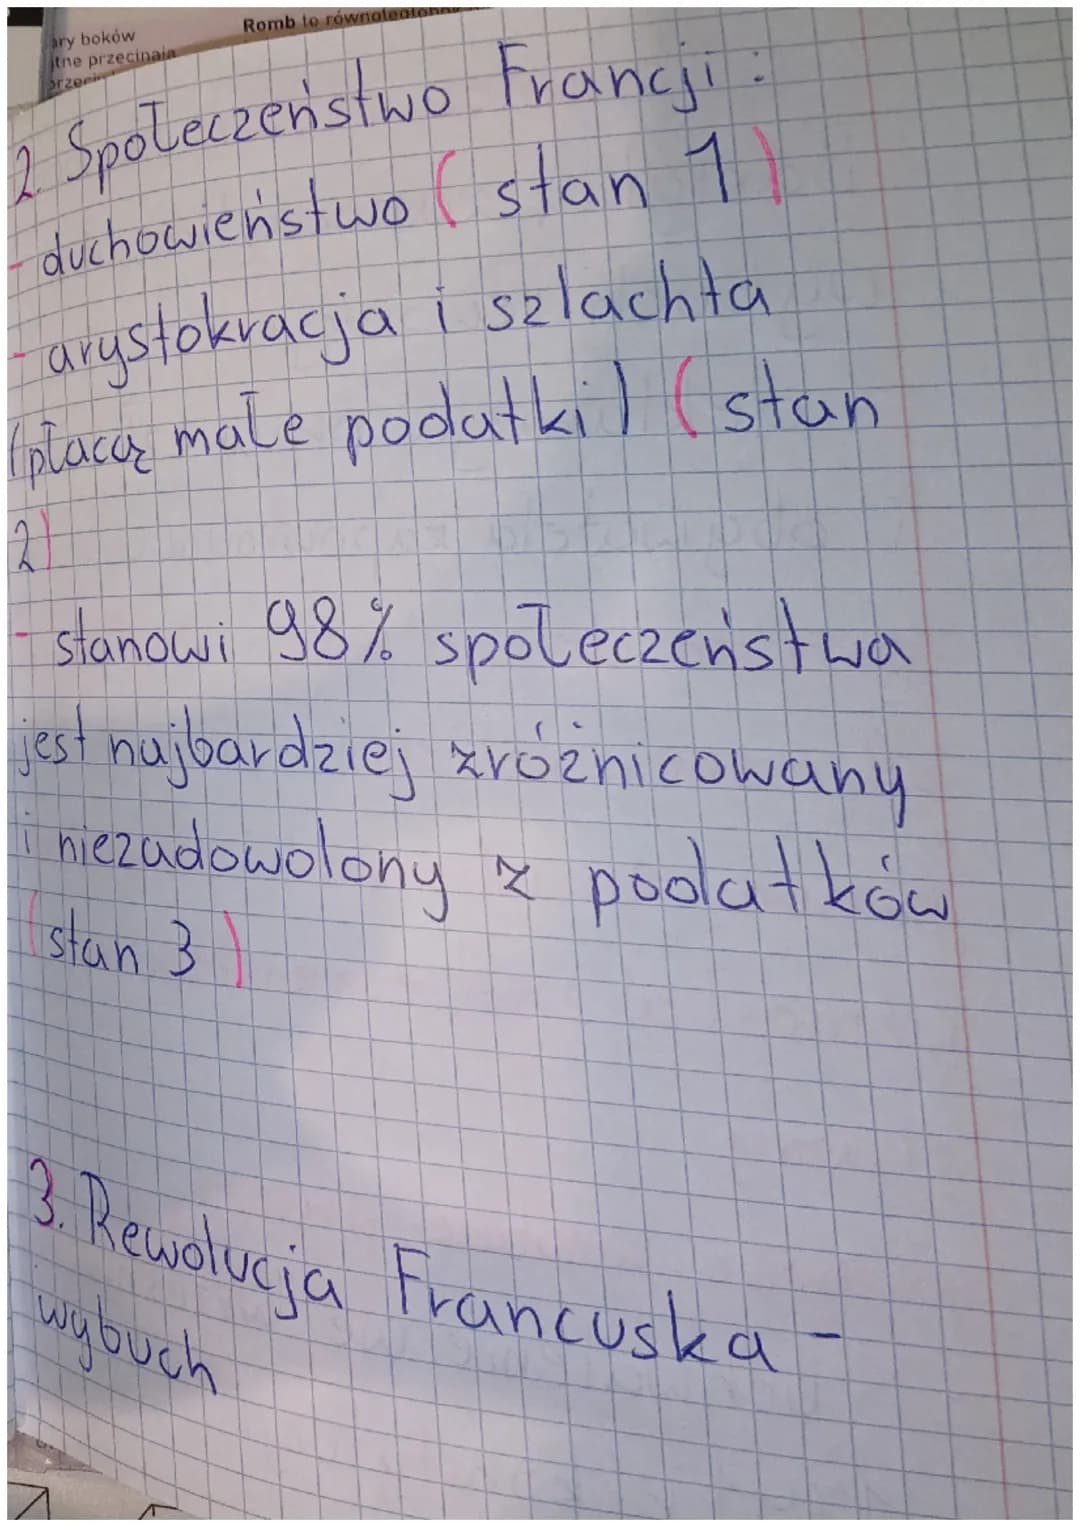 ary boków
Romb to równoległobo
tne przecinają
2. Społeczeństwo Francji:
- duchowieństwo (stan 1)
- arystokracja i szlachta
(płacą małe podatki) (stan
2)
- stanowi 98% społeczeństwa
jest najbardziej zróżnicowany
i niezadowolony z podatków
(stan 3)
3. Rewolucja Francuska -
wybuch